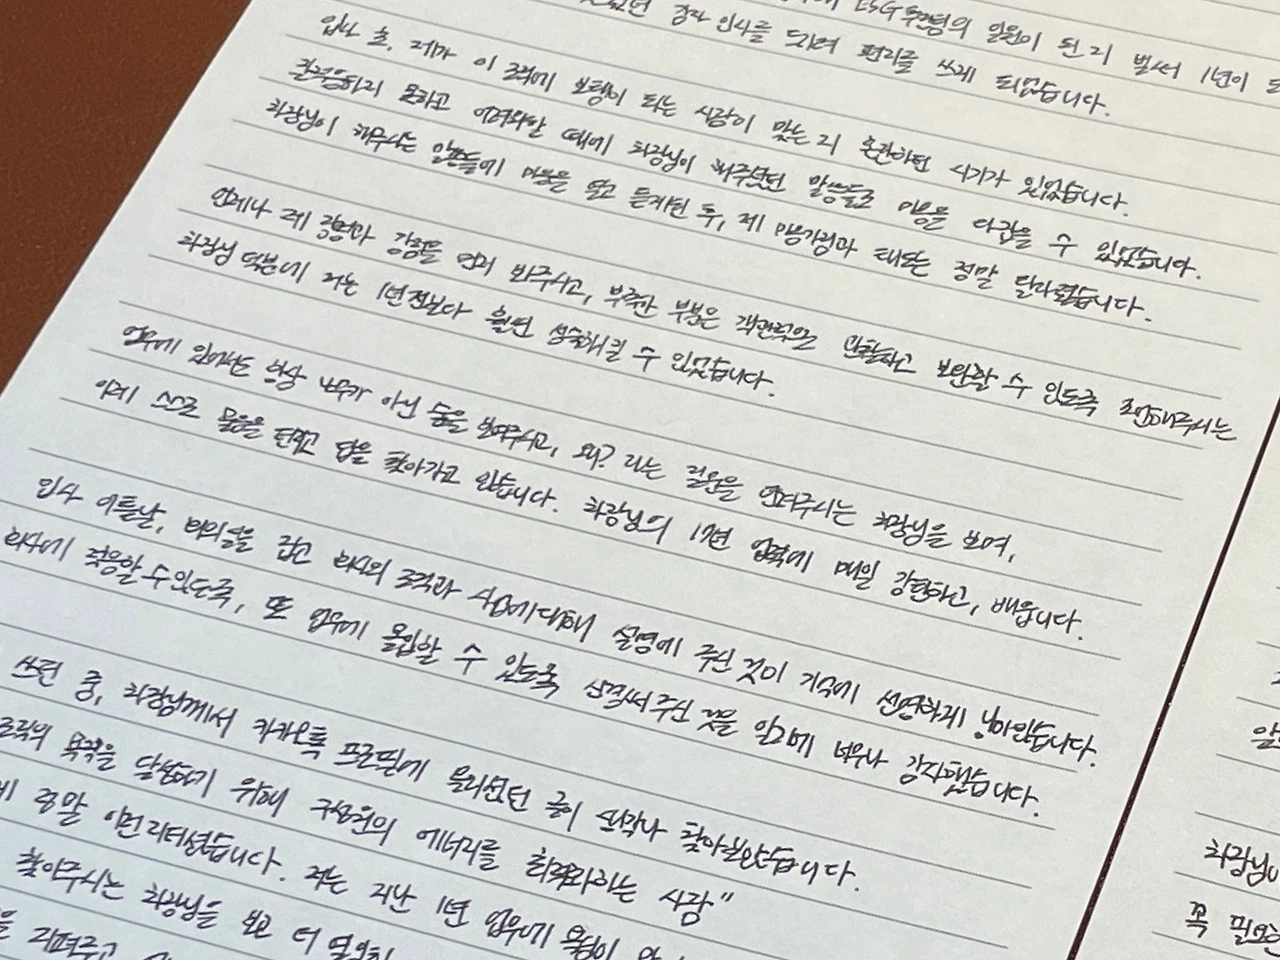 ESG 투명경의 일원이 된 지 벌써 1년이
감사 인사를 드리려 편지를 쓰게 되었습니다.
입사 초, 제가 이 조직에 보탬이 되는 사람이 맞는 지 혼란하던 시기가 있었습니다.
적응하지 못하고 어려워할 때에 차장님이 해주셨던 말씀들로 마음을 다잡을 수 있었습니다.
차장님이 해주시는 말씀들에 마음을 열고 듣게된 후, 제 마음가짐과 태도는 정말 달라졌습니다.
언제나 제 장점과 강점을 먼저 봐주시고, 부족한 부분은 객관적으로 관찰하고 보완할 수 있도록 조언해주시는
차장님 덕분에 저는 1년 전보다 훨씬 성숙해질 수 있었습니다.
업무에 있어서도 항상 나무가 아닌 숲을 보여주시고, 왜? 라는 질문을 던져주시는 차장님을 보며,
이제 스스로 물음을 던지고 답을 찾아가고 있습니다. 차장님의 17년 업력에 매일 감탄하고, 배웁니다.
입사 이튿날, 회의실을 잡고 회사의 조직과 사업에 대해 설명해 주신 것이 기억에 선명하게 남아있습니다.
회사에 적응할 수 있도록, 또 업무에 몰입할 수 있도록 신경써주신 것을 알기에 너무나 감사했습니다.
쓰던 중, 차장님께서 카카오톡 프로필에 올리셨던 글이 생각나 찾아보았습니다.
조직의 목적을 달성하기 위해 구성원의 에너지를 최적화하는 사람"
정말 이런 리더셨습니다. 저는 지난 1년 업무에
찾아주시는 차장님을 보고 더 열심히
지펴주고
차장님
꼭 필요한